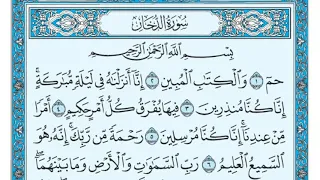 سُورَةُ الدُّخَانِ
بِسْمِ اللَّهِ الرَّحْمَٰنِ الرَّحِيمِ
حمٓ ۝١ وَالْكِتَابِ الْمُبِينِ ۝٢ إِنَّا أَنزَلْنَاهُ فِي لَيْلَةٍ مُّبَارَكَةٍ ۚ
إِنَّا كُنَّا مُنذِرِينَ ۝٣ فِيهَا يُفْرَقُ كُلُّ أَمْرٍ حَكِيمٍ ۝٤ أَمْرًا
مِّنْ عِندِنَا ۚ إِنَّا كُنَّا مُرْسِلِينَ ۝٥ رَحْمَةً مِّن رَّبِّكَ ۚ إِنَّهُ هُوَ
السَّمِيعُ الْعَلِيمُ ۝٦ رَبِّ السَّمَاوَاتِ وَالْأَرْضِ وَمَا بَيْنَهُمَا ۖ